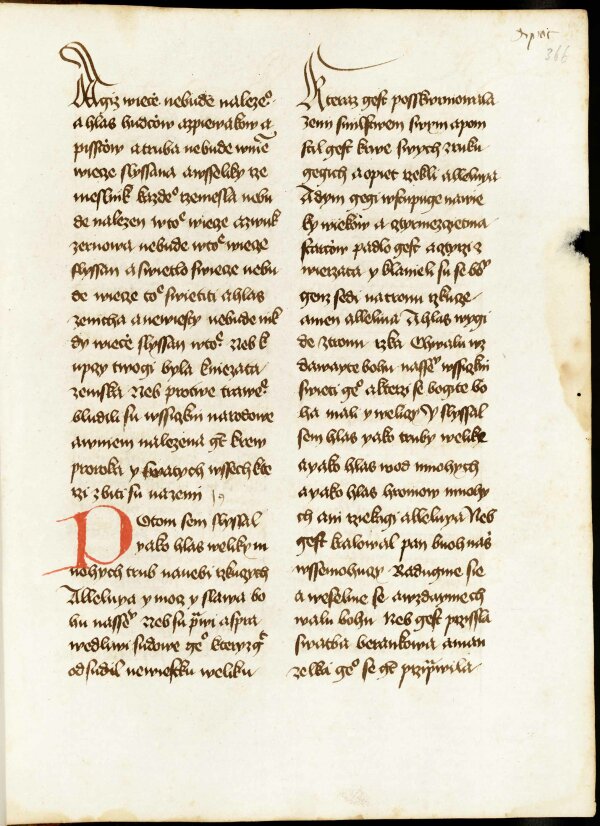 366
A giz wiecze nebude naleze°
a hlas hudczow a zpiewakow a
pisstcow a truba nebude
wiecze slyssana a wsseliky rze
meslnik kazde° rzemesla nebu
de nalezen w to° wiecze a zwuk
zernowa nebude w to° wiecze
slyssan a swietlo swiecze nebu
de wiecze to° swietiti a hlas
zenicha a newiesty nebude nik
dy wiecze slyssan w to° neb k
upczy twogi byla kniezata
zemska neb w protiwe trawe°
bludili su wssiczkni narodowe
a w niem nalezena gt krew
proroka y swatych wssech kte
rzi zbiti su na zemi 19
Potom sem slyssal
yako hlas weliky m
nohych trub na nebi rzkuczych
Alleluya y moczy slawa bo
hu nasse° neb su prwi a spra
wedliwi sudowe ge° kteryz gt
odsudil newiestku weliku
kteraz gest posskwrnowala
zemi smilstwem swym a pom
stil gest krwe swych z ruku
gegich a opiet rzekli alleluya
A dym gegi wstupuge na wie
ky wiekow a cztyrmezczietma
starcow padlo gest a cztyrzi z
wierzata y klanieli su se bo°
genz sedi na tronu rzkucze
amen alleluya A hlas wygi
de z tronu rzka Chwalu wz
dawayte bohu nasse° wssiczkni
swieti ge° a kterzi se bogite bo
ha mali y weliczy Y slyssal
sem hlas yako truby welike
a yako hlas wod mnohych
a yako hlas hromow mnohy
ch ani rziekagi alleluya Neb
gest kralowal pan buoh nas
wssemohuczy Radugme sie
a weselme se a wzdayme ch
walu bohu Neb gest przissla
swatba berankowa a man
zelka ge° se gt prziprawila